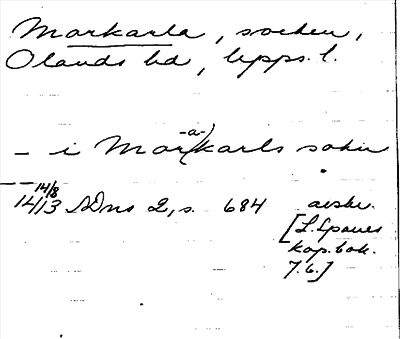 Morkarla, socken,
Olands hd, Upps. l.
-a-
– i Mor(karls sokn
14/8
14/13 SDns 2, s. 684 avskr.
[L. Spaues
kop.bok.
7.6.]